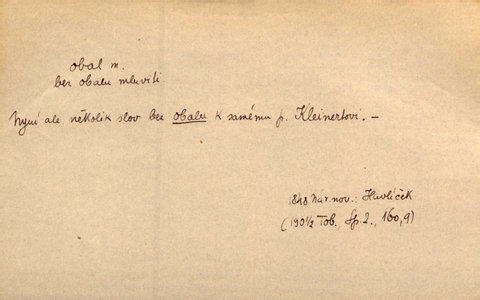 obal m.
bez obalu mluviti.
Nyní ale několik slov bez obalu k samému p. Kleinertovi. –
1848 Nár. nov.: Havlíček
(1901/2 Tob., Sp. 2., 160,9)